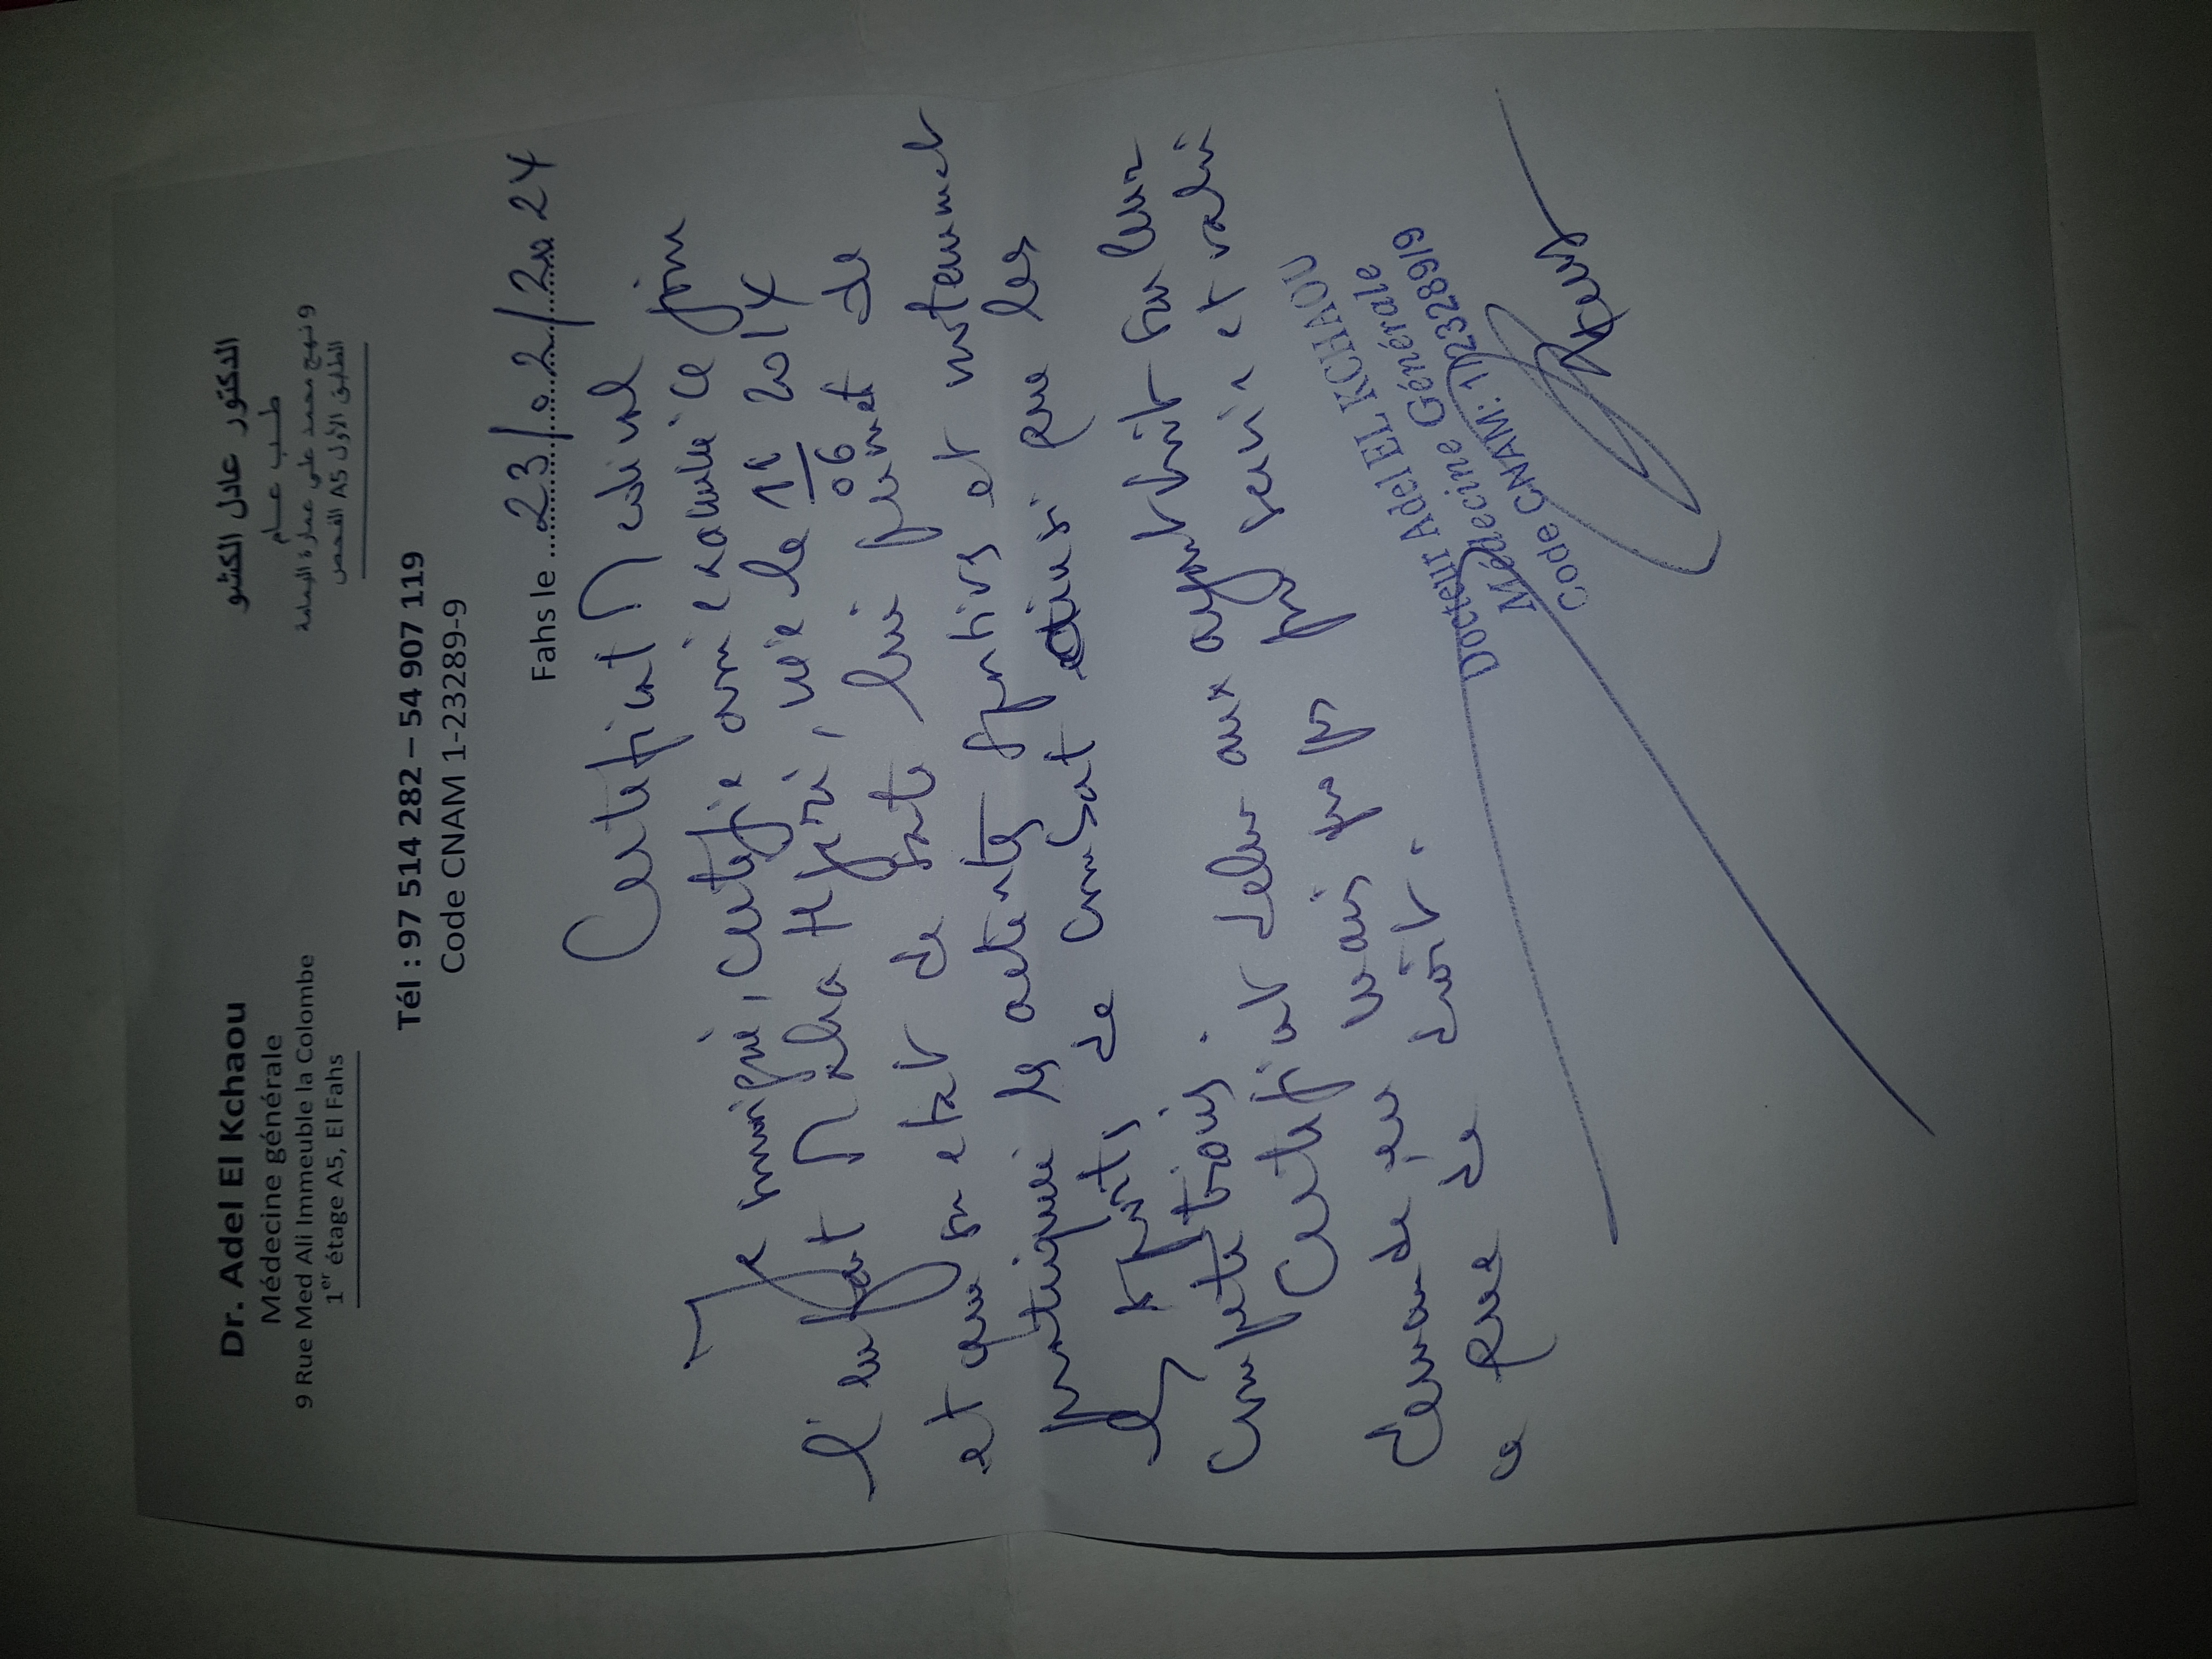 Dr. Adel El Kchaou
Médecine générale
9 Rue Med Ali Immeuble la Colombe
1er étage A5, El Fahs
الدكتور عادل الكشو
طب عام
9 نهج محمد علي عمارة اليمامة
الطابق الأول A5 الفحص
Tél : 97 514 282 – 54 907 119
Code CNAM 1-23289-9
Fahs le 23/02/2024
Certificat Médical
Je soussigné, certifie avoir examiné ce jour
l'enfant née le 11 06
et que son etat de santé lui permet de
pratiquer les activités sportives et notamment
les sports de combat ainsi que les
compétitions.
Certificat delivré aux ayant droit sur leur
demande en main propre pour servir et valoir
ce que de droit.
Docteur Adel EL KCHAOU
Médecine Générale
Code CNAM: 1/23289/9